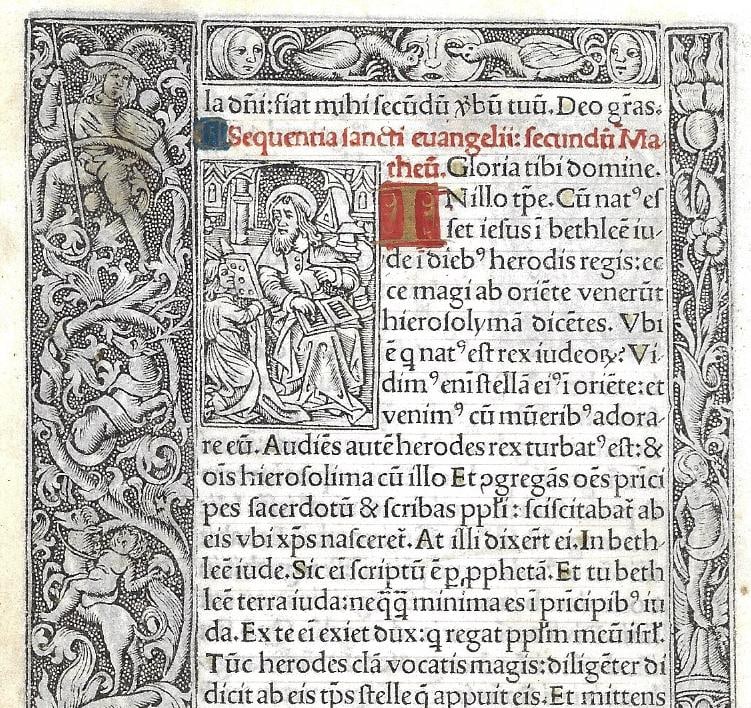 la dñi: fiat mihi secũdũ ꝟbũ tuũ. Deo gr̃as.
Sequentia sancti euangelii: secundũ Ma-
theũ. Gloria tibi domine.
INillo tp̃e. Cũ natꝰ es
set iesus ĩ bethleẽ iu-
de ĩ diebꝰ herodis regis: ec
ce magi ab oriẽte venerũt
hierosolymã dicẽtes. Vbi
ẽ q natꝰ est rex iudeoꝝ? Vi-
dimꝰ eni stellã eiꝰ ĩ oriẽte: et
venimꝰ cũ mũeribꝰ adora-
re eũ. Audiẽs autẽ herodes rex turbatꝰ est: &
oĩs hierosolima cũ illo Et ꝯgregãs oẽs prici
pes sacerdotũ & scribas ppłi: sciscitabat̃ ab
eis vbi xp̃s nasceret̃. At illi dixert̃ ei. In beth-
leẽ iude. Sic ei scriptũ ẽ p ꝓphetã. Et tu beth
leẽ terra iuda: neq̃q̃ minima es ĩ pricipibꝰ iu
da. Ex te ei exiet dux: q regat ppłm meũ isrł.
Tũc herodes clã vocatis magis: diligẽter di
dicit ab eis tp̃s stelle q̃ appuit eis. Et mittens